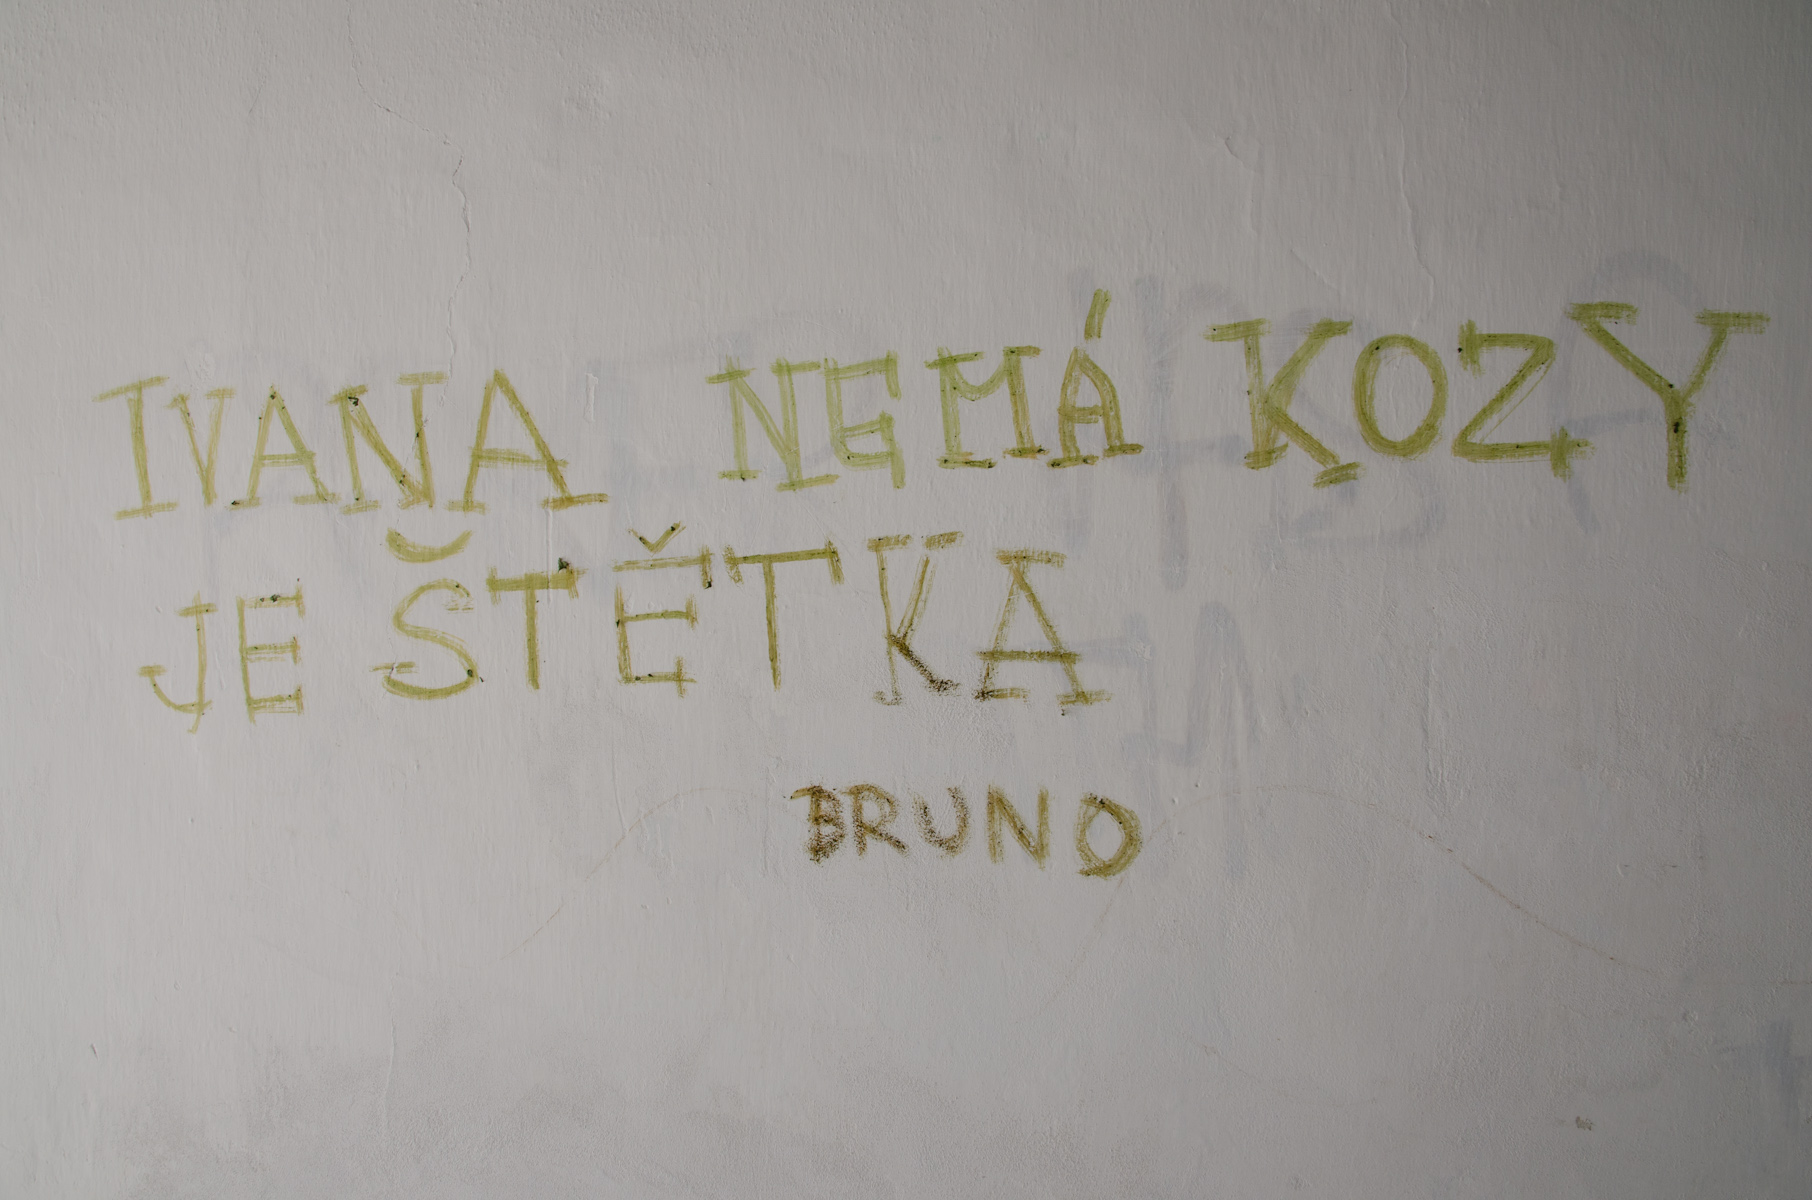 IVANA NEMÁ KOZY
JE ŠTĚTKA
BRUNO